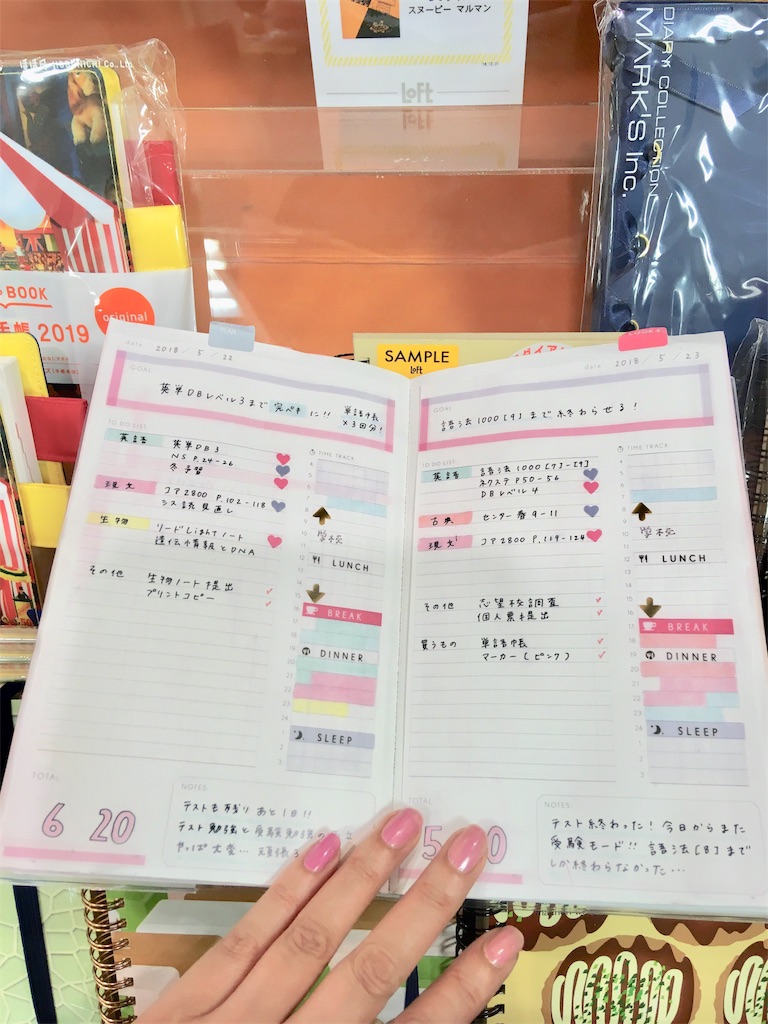 スヌーピー マルマン
LOFT
DIARY COLLECTION
MARK'S Inc.
BOOK
手帳 2019
original
SAMPLE
LOFT
date 2018 / 5 / 22
GOAL
英単DBレベル3まで 完ペキ に!! 単語帳
×3回分!
TO DO LIST
英語 英単DB3
NS P.24-26
冬予習
現文 コア2800 P.102-118
生物 リードLightノート
遺伝情報とDNA
その他 生物ノート提出
プリントコピー
TIME TRACK
4
5
6
7
8
9
10 学校
11
12 LUNCH
13
14
15
16 BREAK
17
18
19 DINNER
20
21
22
23
24
1 SLEEP
2
3
TOTAL
6 20
NOTES:
テストも残りあと1日!!
date 2018 / 5 / 23
GOAL
語法1000[9]まで終わらせる!
TO DO LIST
英語 語法1000[7]-[9]
ネクステ P50-56
DBレベル4
古典 センター 9-11
現文 コア2800 P.119-124
その他 志望校調査
個人票提出
買うもの 単語帳
マーカー(ピンク)
TIME TRACK
学校
LUNCH
BREAK
DINNER
SLEEP
TOTAL
NOTES:
テスト終わった!今日からまた
受験モード!! 語法[8]まで
しか終わらなかった…